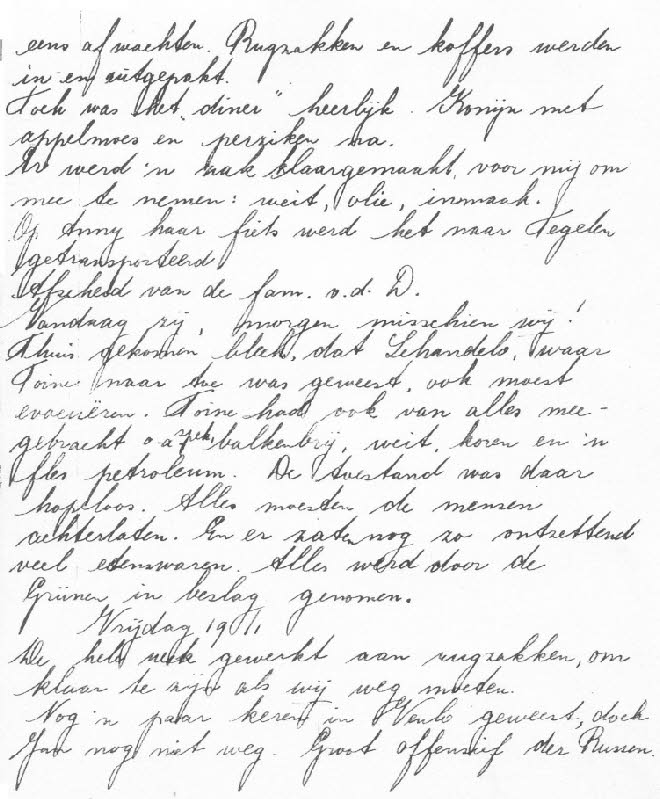 eens afwachten. Rugzakken en koffers werden
in en uitgepakt.
Toch was het "diner" heerlijk. Konijn met
appelmoes en perziken na.
Er werd 'n zak klaargemaakt, voor mij om
mee te nemen: weit, olie, inmaak.
Op Anny haar fiets werd het naar Tegelen
getransporteerd
Afscheid van de fam. v.d. D.
Vandaag zij, morgen misschien wij!
Thuis gekomen bleek, dat Schandelo, waar
Toine naar toe was geweest, ook moest
evacuëren. Toine had ook van alles mee-
gebracht o.a. spek, balkenbrij, weit, koren en 'n
fles petroleum. De toestand was daar
hopeloos. Alles moesten de mensen
achterlaten. En er zaten nog zo ontzettend
veel etenswaren. Alles werd door de
Grünen in beslag genomen.
Vrijdag 19/1
De hele week gewerkt aan rugzakken, om
klaar te zijn als wij weg moeten.
Nog 'n paar keren in Venlo geweest, doch
Jan nog niet weg. Groot offensief der Russen.